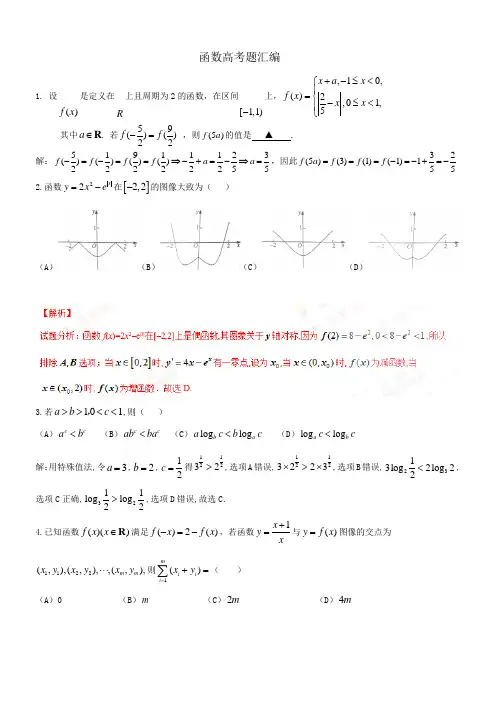 函数高考题汇编
1. 设 f(x) 是定义在 R 上且周期为2的函数，在区间 [−1,1) 上，f(x) = { x + a, −1 ≤ x < 0, |2/5 − x|, 0 ≤ x < 1,
其中 a ∈ R. 若 f(−5/2) = f(9/2) ，则 f(5a) 的值是 ▲ .
解：f(−5/2) = f(−1/2) = f(9/2) = f(1/2) ⇒ −1/2 + a = 1/2 − 2/5 ⇒ a = 3/5，因此 f(5a) = f(3) = f(1) = f(−1) = −1 + 3/5 = −2/5
2.函数 y = 2x² − e^|x| 在 [−2,2] 的图像大致为（ ）
（A） （B） （C） （D）
【解析】
试题分析：函数 f(x)=2x²−e^|x| 在[−2,2]上是偶函数,其图象关于 y 轴对称,因为 f(2) = 8 − e², 0 < 8 − e² < 1,所以
排除 A,B 选项；当 x ∈ [0,2] 时, y' = 4x − eˣ 有一零点,设为 x₀,当 x ∈ (0, x₀) 时, f(x) 为减函数,当
x ∈ (x₀,2) 时, f(x) 为增函数．故选 D.
3.若 a > b > 1,0 < c < 1,则（ ）
（A）aᶜ < bᶜ （B）abᶜ < baᶜ （C）a log_b c < b log_a c （D）log_a c < log_b c
解:用特殊值法,令 a = 3, b = 2, c = 1/2 得 3^(1/2) > 2^(1/2),选项A错误, 3×2^(1/2) > 2×3^(1/2),选项B错误, 3log₂ 1/2 < 2log₃ 1/2,
选项C正确, log₃ 1/2 > log₂ 1/2,选项D错误,故选C.
4.已知函数 f(x)(x ∈ R) 满足 f(−x) = 2 − f(x)，若函数 y = (x+1)/x 与 y = f(x) 图像的交点为
(x₁, y₁),(x₂, y₂),⋯,(xₘ, yₘ), 则 ∑_{i=1}^{m} (xᵢ + yᵢ) = （ ）
（A）0 （B）m （C）2m （D）4m